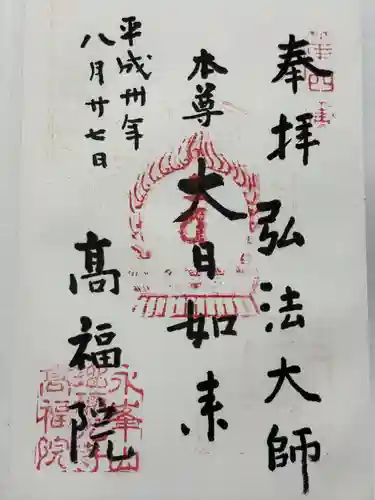 奉拝 弘法大師
本尊 大日如来
平成卅年
八月廿七日
髙福院